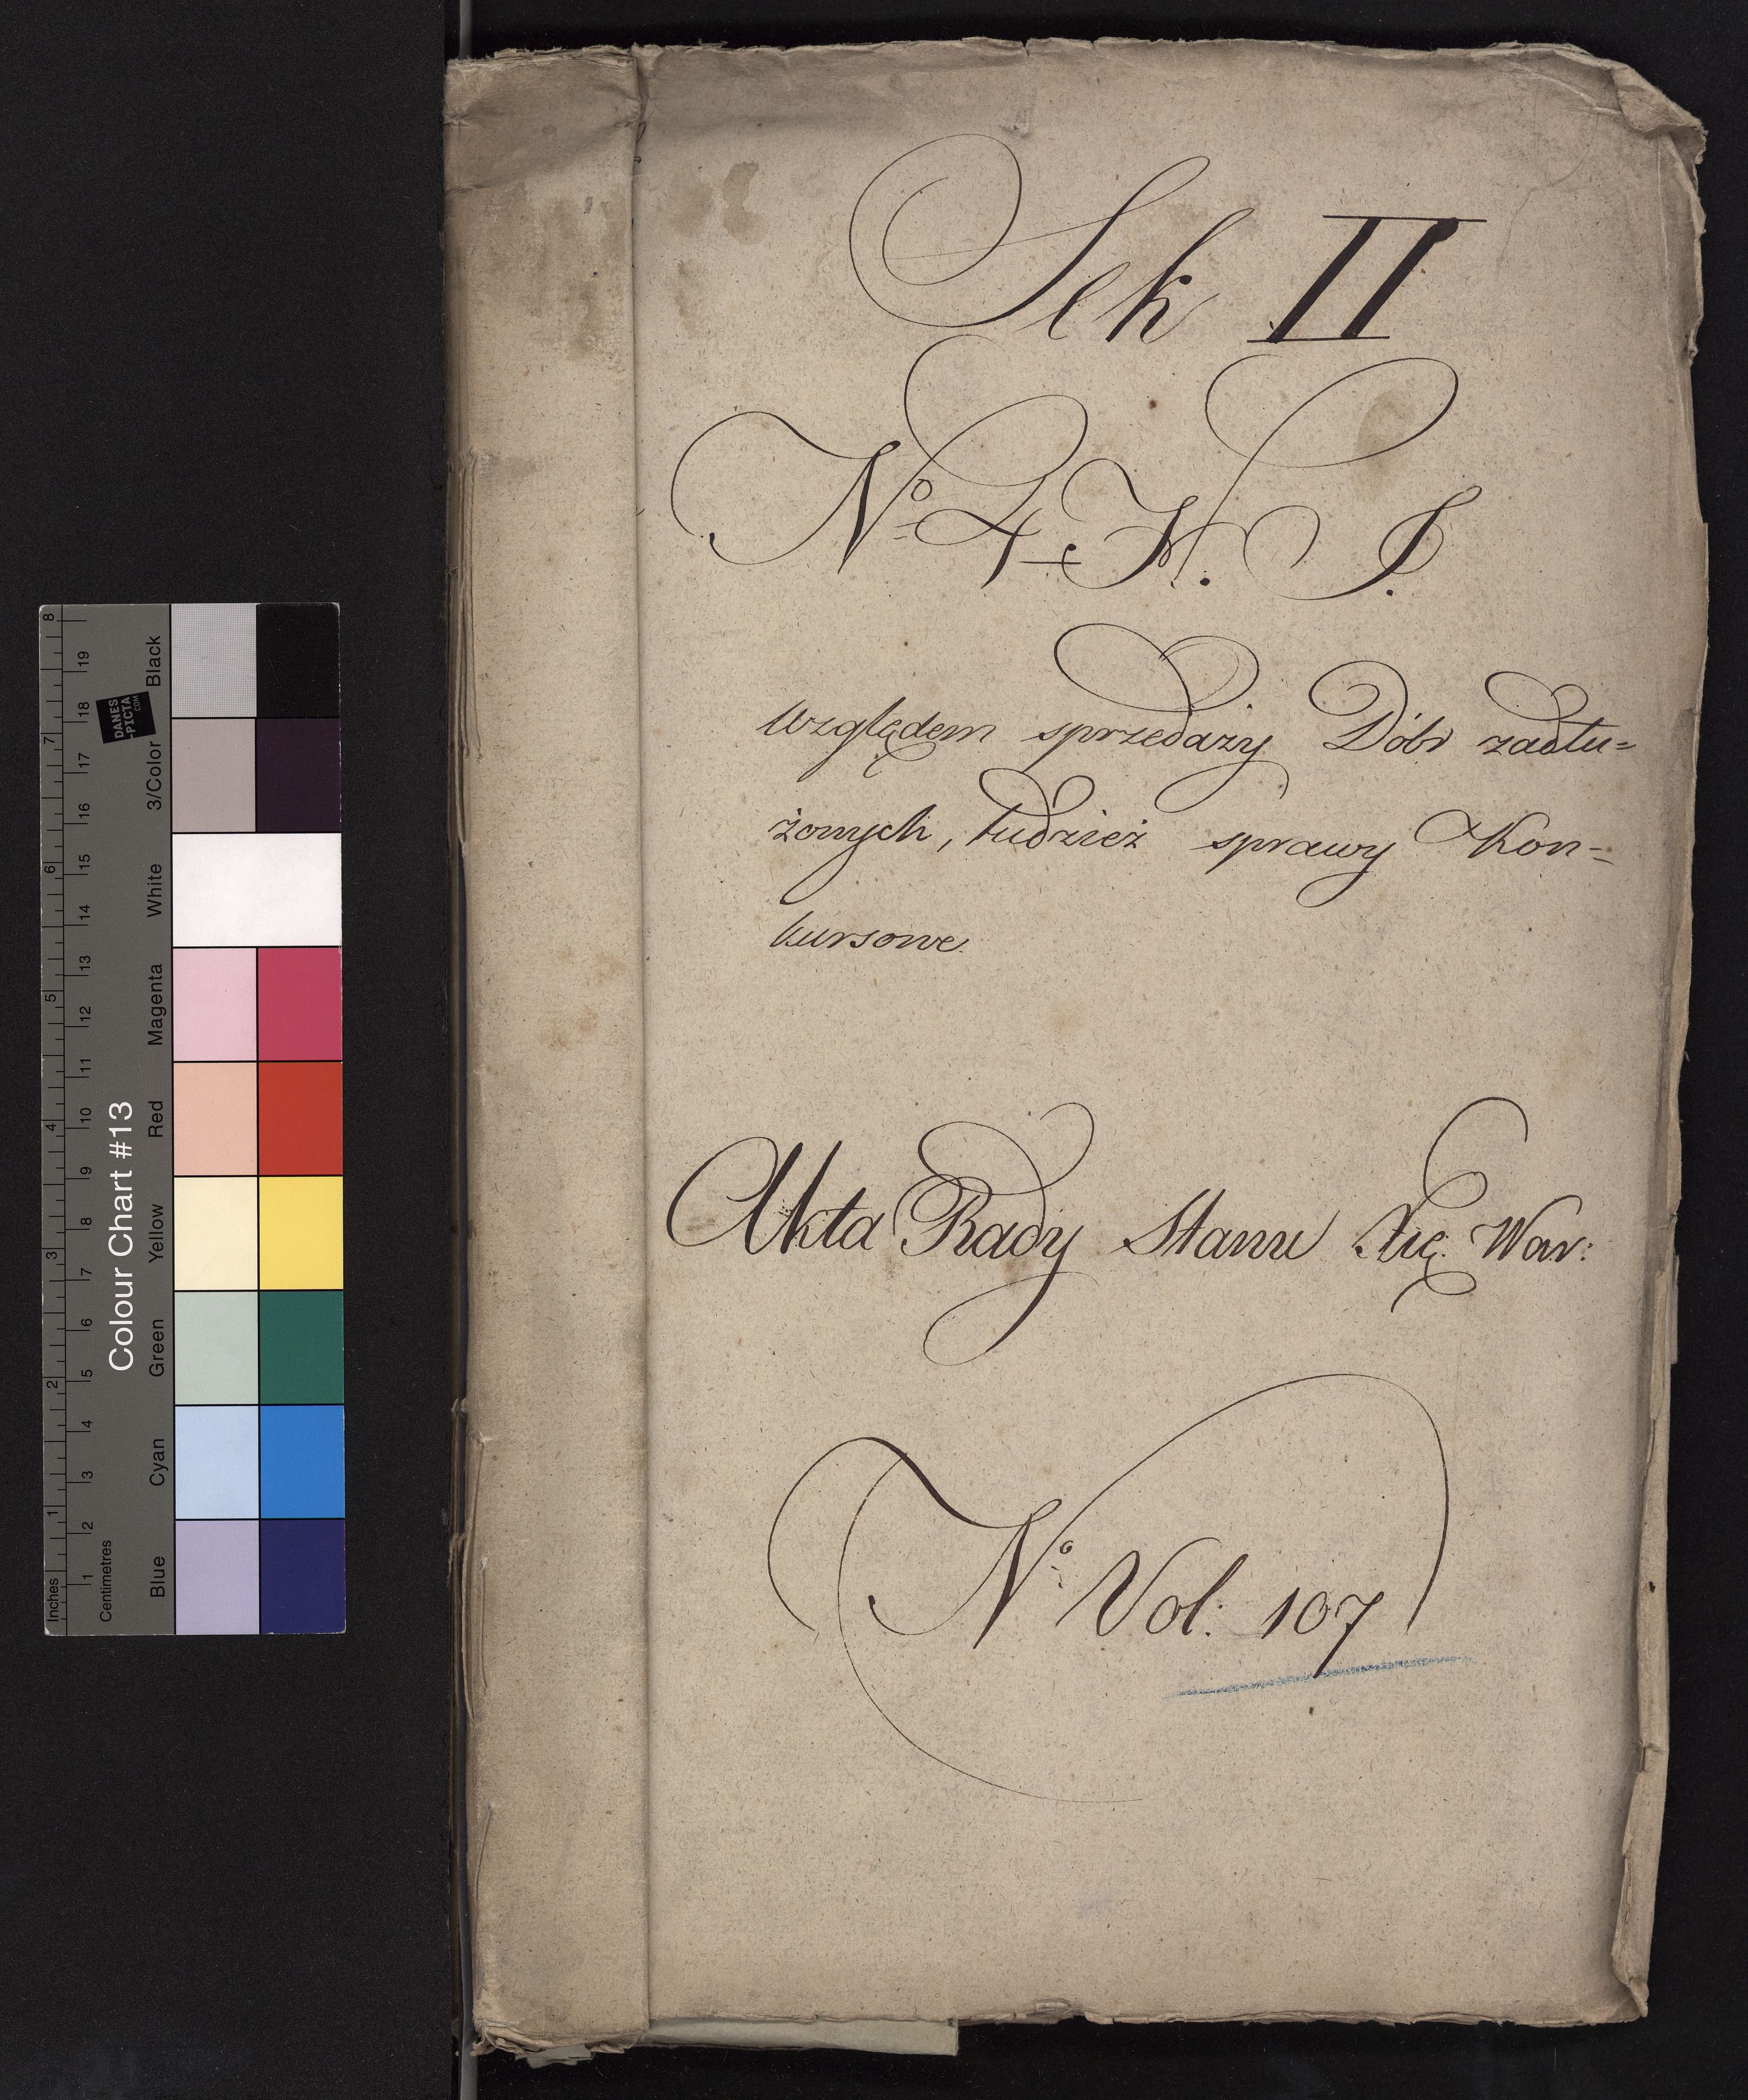 Sek II
№ 4 H. J.
względem sprzedaży Dóbr zadłu=
żonych, tudzież sprawy Kon=
kursowe.
Akta Rady Stanu Xię: War:
№ Vol: 107
Colour Chart #13
Inches
Centimetres
Blue
Cyan
Green
Yellow
Red
Magenta
White
3/Color
Black
DANES
-PICTA
.COM
1 2 3 4 5 6 7 8
1 2 3 4 5 6 7 8 9 10 11 12 13 14 15 16 17 18 19